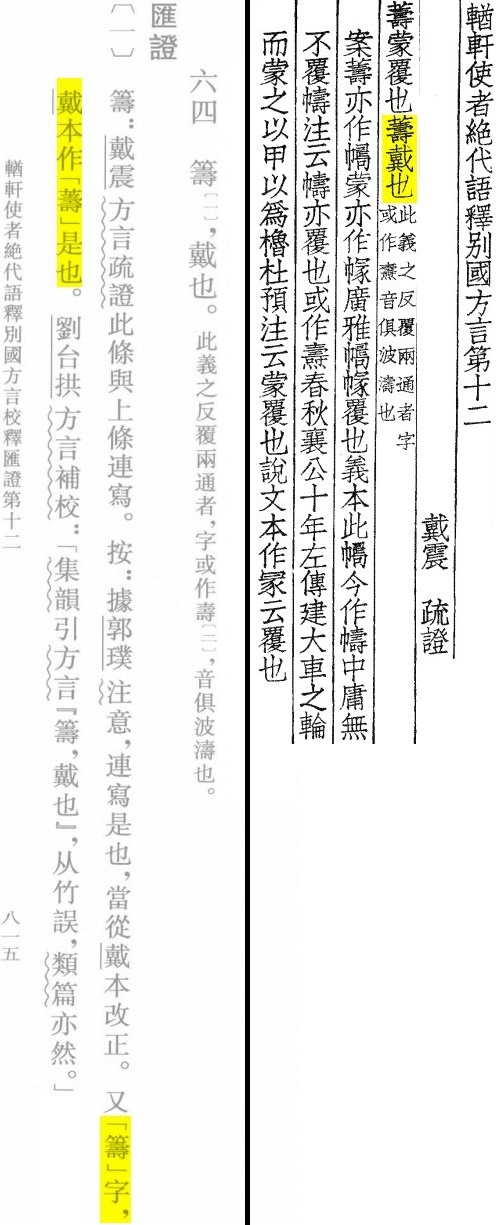 輶軒使者絶代語釋別國方言第十二
戴震 疏證
薵蒙覆也薵戴也此義之反覆兩通者字
或作燾音俱波濤也
案薵亦作㡞蒙亦作幏廣雅㡞幏覆也義本此㡞今作幬中庸無
不覆幬注云幬亦覆也或作燾春秋襄公十年左傳建大車之輪
而蒙之以甲以爲櫓杜預注云蒙覆也說文本作冡云覆也
六四 籌〔一〕,戴也。此義之反覆兩通者,字或作壽〔二〕,音俱波濤也。
匯證
〔一〕 籌:戴震方言疏證此條與上條連寫。按:據郭璞注意,連寫是也,當從戴本改正。又「籌」字,
戴本作「薵」是也。劉台拱方言補校:「集韻引方言『籌,戴也』,从竹誤,類篇亦然。」
輶軒使者絕代語釋別國方言校釋匯證第十二 八一五